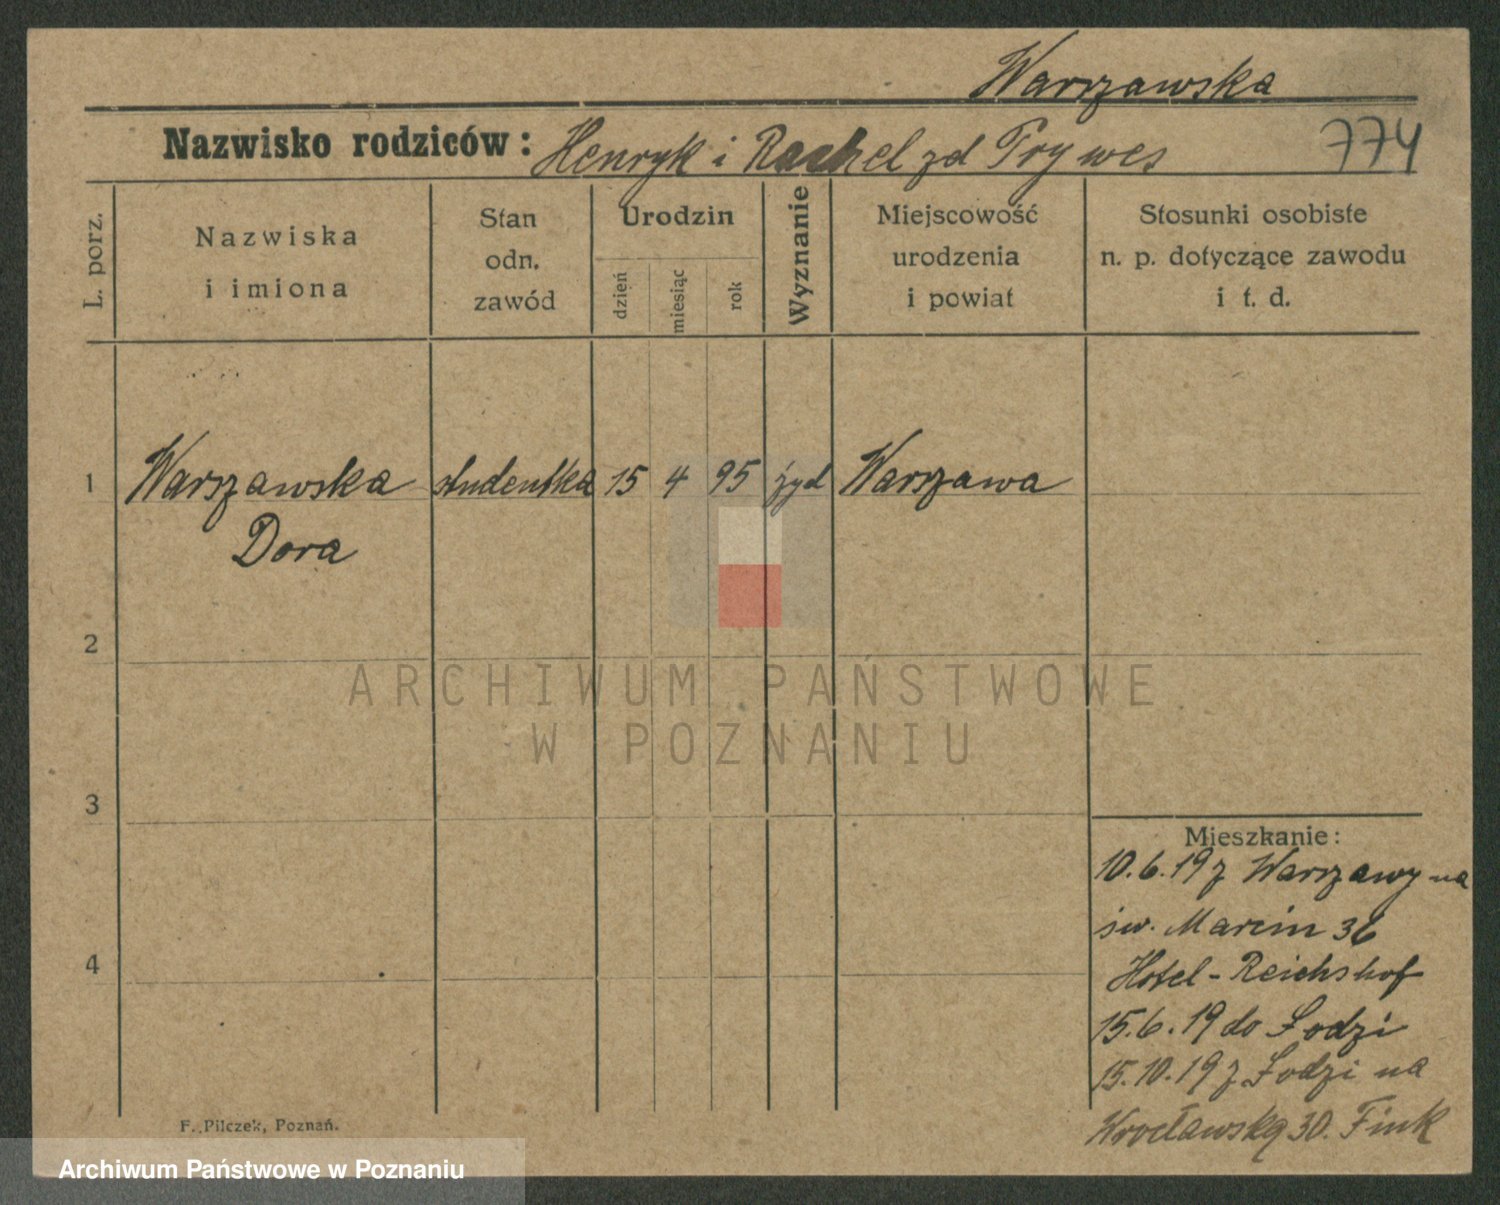 Warszawska
Nazwisko rodziców: Henryk i Rachel zd Prywes
774
L. porz.
Nazwiska
i imiona
Stan
odn.
zawód
Urodzin
dzień
miesiąc
rok
Wyznanie
Miejscowość
urodzenia
i powiat
Stosunki osobiste
n. p. dotyczące zawodu
i t. d.
1 Warszawska studentka 15 4 95 żyd Warszawa
Dora
2
ARCHIWUM PAŃSTWOWE
W POZNANIU
3
Mieszkanie:
10.6.19 z Warszawy na
św. Marcin 36
Hotel-Reichshof
4
15.6.19 do Łodzi
15.10.19 z Łodzi na
Wrocławską 30. Fink
F. Pilczek, Poznań.
Archiwum Państwowe w Poznaniu